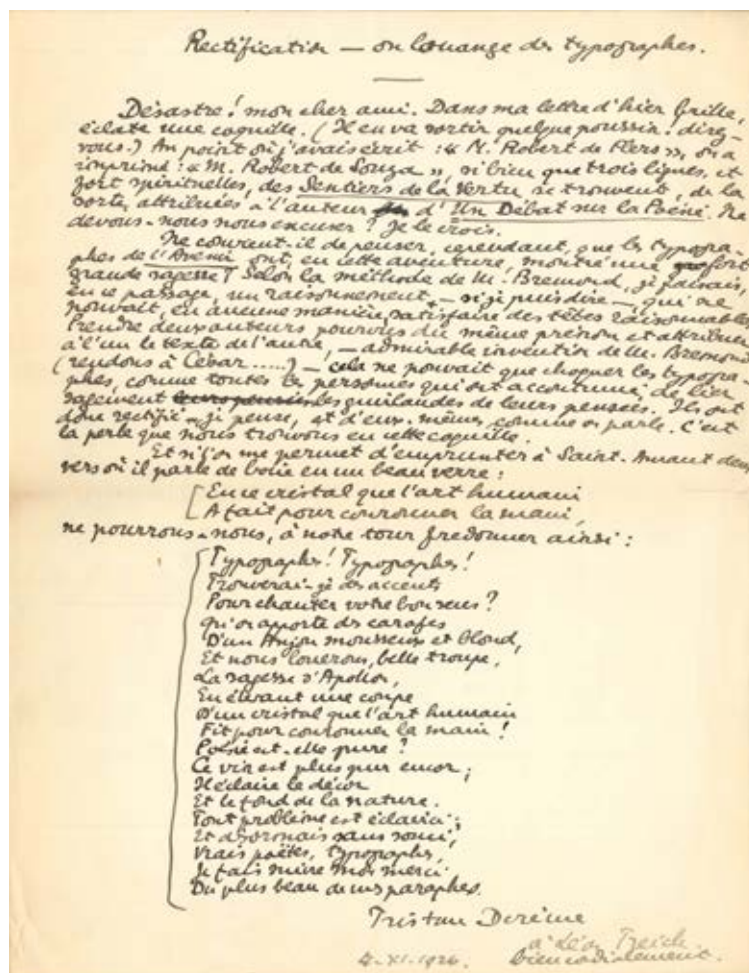 Rectification — ou louange des typographes.
Désastre ! mon cher ami. Dans ma lettre d'hier brille,
éclate une coquille. (Il en va sortir quelque poussin, direz-
vous.) Au point où j'avais écrit : « M. Robert de Flers », on a
imprimé : « M. Robert de Souza », si bien que trois lignes, et
fort spirituelles, des Sentiers de la Vertu se trouvent, de la
sorte, attribuées à l'auteur d'Un Débat sur la Poésie. Ne
devons-nous nous excuser ? Je le crois.
Ne convient-il de penser, cependant, que les typogra-
phes de l'Avenir ont, en cette aventure, montré une fort
grande sagesse ? Selon la méthode de M. Bremond, je faisais,
en ce passage, un raisonnement, — si je puis dire —, qui ne
pouvait, en aucune manière, satisfaire des têtes raisonnables.
Prendre deux auteurs pourvus du même prénom et attribuer
à l'un le texte de l'autre, — admirable invention de M. Bremond
(rendons à César.....) — cela ne pouvait que choquer les typogra-
phes, comme toutes les personnes qui ont accoutumé de lier
sagement les guirlandes de leurs pensées. Ils ont
donc rectifié, je pense, et d'eux-mêmes, comme on parle. C'est
la perle que nous trouvons en cette coquille.
Et si l'on me permet d'emprunter à Saint-Amant deux
vers où il parle de boire en un beau verre :
En ce cristal que l'art humain
A fait pour couronner la main,
ne pourrons-nous, à notre tour fredonner ainsi :
Typographes ! Typographes !
Trouverai-je des accents
Pour chanter votre bon sens ?
Qu'on apporte des carafes
D'un Anjou mousseux et blond,
Et nous louerons, belle troupe,
La sagesse d'Apollon,
En élevant une coupe
D'un cristal que l'art humain
Fit pour couronner la main !
Poésie est-elle pure ?
Ce vin est plus pur encor ;
Il éclaire le décor
Et le fond de la nature.
Tout problème est éclairci ;
Et désormais sans souci,
Vrais poètes, typographes,
Je fais suivre mon merci
Du plus beau de mes paraphes.
Tristan Derème
à Léon Treich
4-XI-1926. bien cordialement.